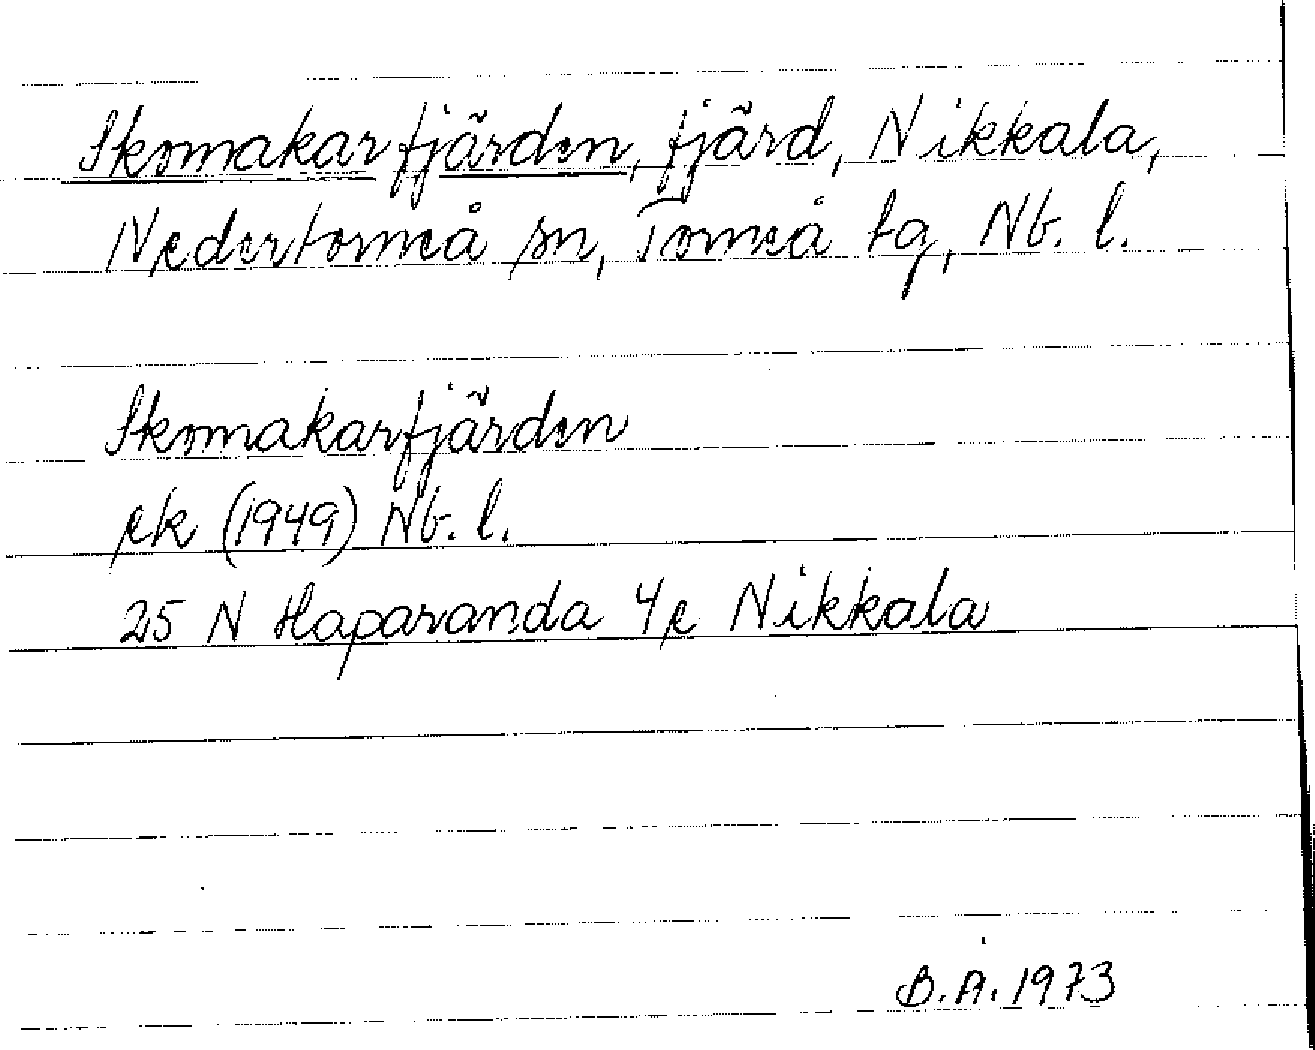 Skomakarfjärden, fjärd, Nikkala,
Nedertorneå sn, Torneå tg, Nb. l.
Skomakarfjärden
ek (1949) Nb. l.
25 N Haparanda 4e Nikkala
B.Å. 1973